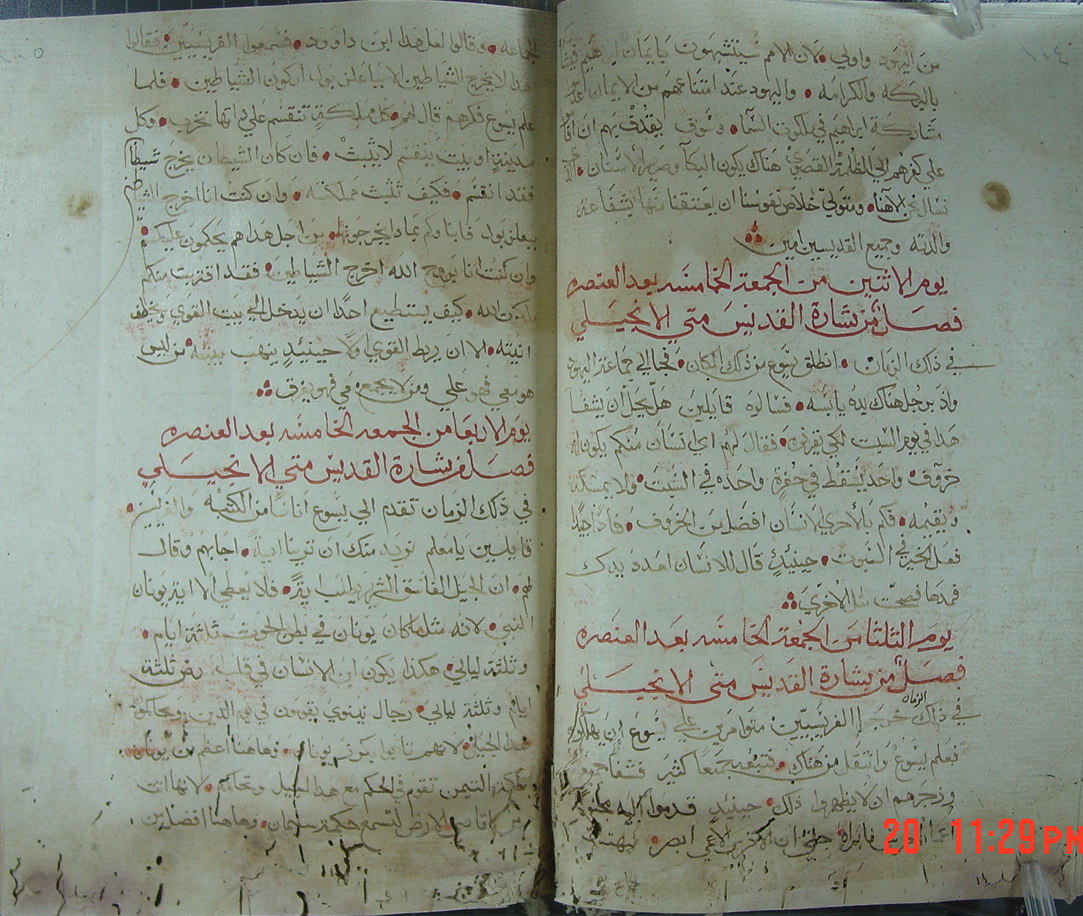 ١٠٤
من اليهود واولي • لان الامم سيتشبهون بايمان ابرهيم
بالبركه والكرامه • واليهود عند امتناعهم من الايمان
مشاركة ابراهيم في ملكوت السما • وسوف يقذف بهم
علي كفرهم الي الظلمة القصوي هناك يكون البكا وصرير الاسنان •
نسال نحن الاهنا • ومتولي خلاص نفوسنا ان يعتقنا منها بشفاعة
والدته وجميع القديسين امين
يوم الاثنين من الجمعة الخامسه بعد العنصره
فصل من بشارة القديس متي الانجيلي
في ذلك الزمان • انطلق يسوع من ذلك المكان • فجا الي مجماعتهم اليهود
واذ برجل هناك يده يابسه • فسالوه قايلين هل يحل ان يشفا
هذا في يوم السبت لكي يقرفوه • فقال لهم اي انسان منكم يكون له
خروف واحد فيسقط في حفرة واحده في السبت • ولا يمسكه
ويقيمه • فكم بالحري الانسان افضل من الخروف • فاذا جيدا
فعل الخير في السبوت • حينيذ قال للانسان امدد يدك
فمدها فصحت مثل الاخري
يوم الثلثا من الجمعة الخامسه بعد العنصره
فصل من بشارة القديس متي الانجيلي
في ذلك الزمان خرج الفريسيين متوامرين علي يسوع ان يهلكوه
فعلم يسوع وانتقل من هناك • فتبعه جمعا كثير فشفا جميعهم
وزجرهم ان لا يظهروا ذلك • حينيذ قدموا اليه مجنون
اعمي اخرس فابراه • حتي ان الاخرس الاعمي ابصر • فبهتت
١٠٥
الجماعه • وقالوا لعل هذا ابن داوود • فسمعوا الفريسيين • فقالوا
هذا لا يخرج الشياطين الا بباعلزبول اركون الشياطين • فلما
علم يسوع فكرهم قال لهم • كل مملكة تنقسم علي ذاتها تخرب • وكل
مدينة او بيت ينقسم لا يثبت • فان كان الشيطان يخرج شيطانا
فقد انقسم • فكيف تثبت مملكته • وان كنت انا اخرج الشياطين
ببعلزبول فابناوكم بماذا يخرجونها • من اجل هذا هم يحكمون عليكم •
وان كنت انا بروح الله اخرج الشياطين • فقد اقتربت منكم
ملكوت الله • كيف يستطيع احدا ان يدخل الي بيت القوي ويخطف
انيته • الا ان يربط القوي اولا حينيذ ينهب بيته • من ليس
هو معي فهو علي ومن لا يجمع معي فهو يفرق
يوم الاربعا من الجمعه الخامسه بعد العنصره
فصل من بشارة القديس متي الانجيلي
في ذلك الزمان تقدم الي يسوع اناسا من الكتبه والفريسيين •
قايلين يا معلم نريد منك ان ترينا اية • اجابهم وقال
لهم • ان الجيل الفاسق الشرير يطلب اية • فلا يعطي الا اية يونان
النبي • لانه مثل ما كان يونان في بطن الحوت ثلثة ايام •
وثلثة ليالي • هكذا يكون ابن الانسان في قلب الارض ثلثة
ايام وثلثة ليالي • رجال نينوي يقومون في يوم الدين ويحاكموا
هذا الجيل • لانهم تابوا بكرز يونان • وهاهنا اعظم من يونان
ملكة التيمن تقوم في الحكم مع هذا الجيل وتحاكمه • لانها اتت
من اقاصي الارض لتسمع حكمة سليمان • وهاهنا افضل من
20 11:29PM